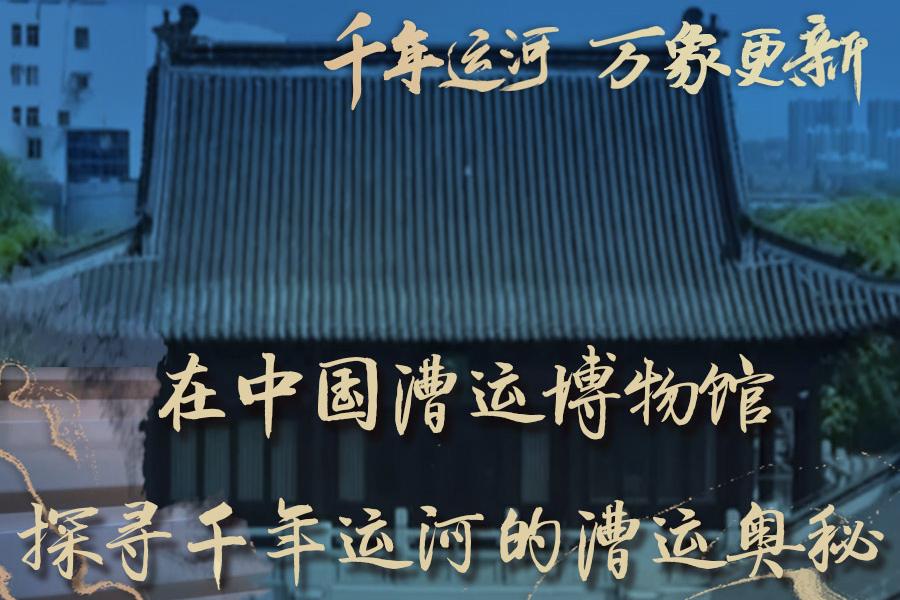 千年运河 万象更新
在中国漕运博物馆
探寻千年运河的漕运奥秘